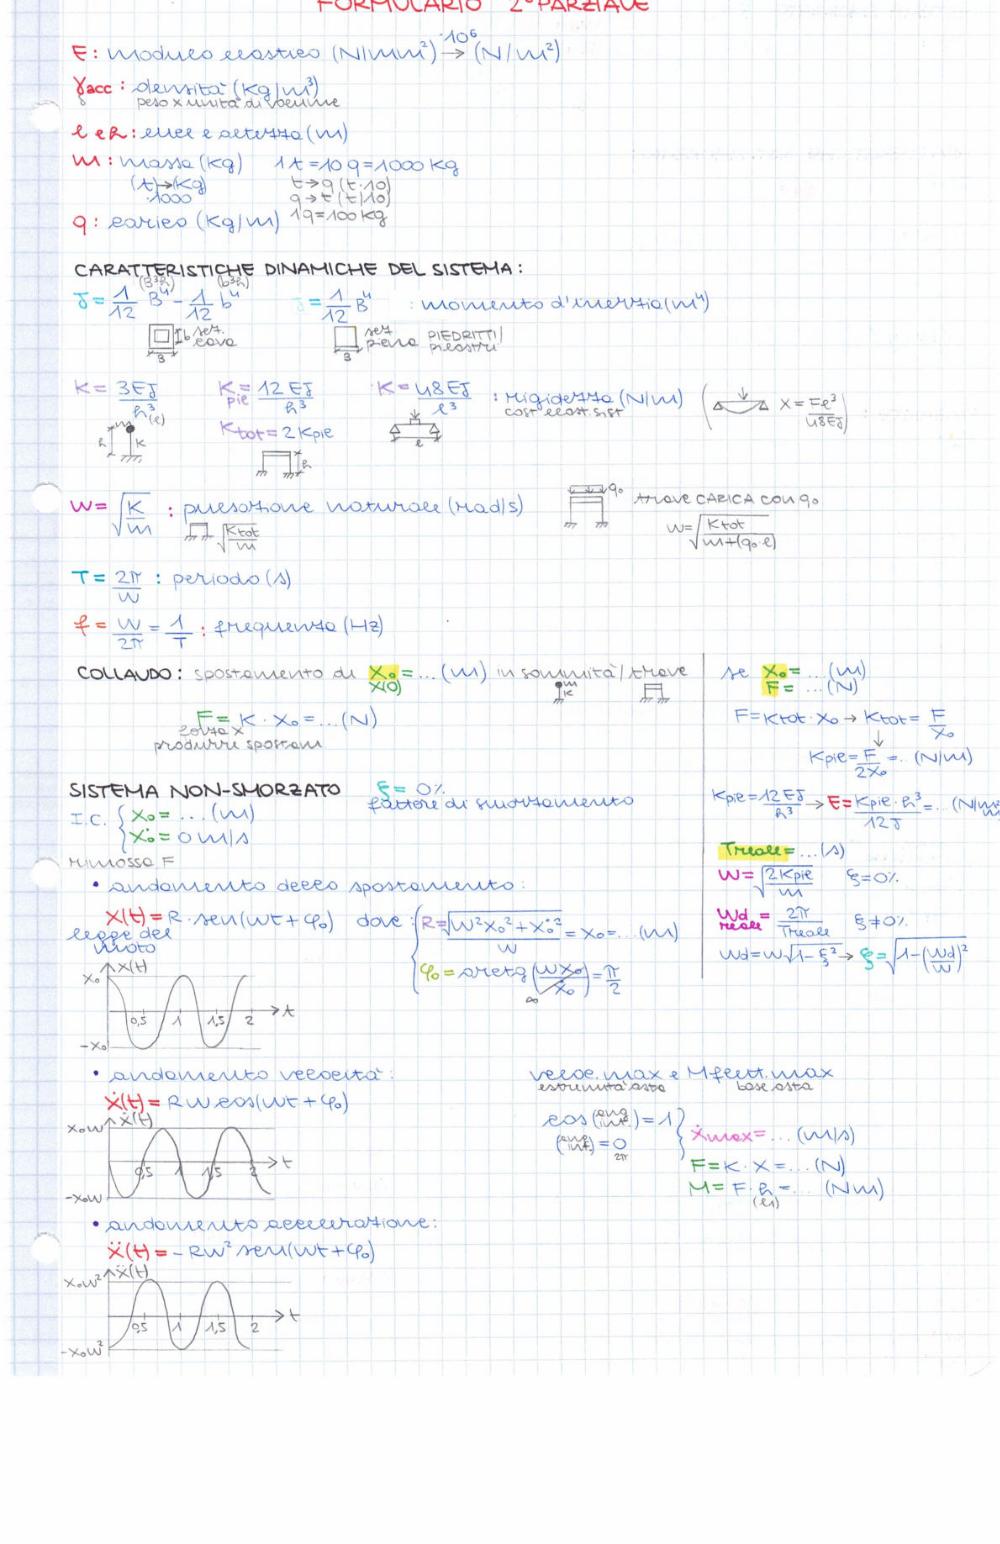 FORMULARIO 2° PARZIALE
E: modulo elastico (N/mm²) →·10⁶ (N/m²)
γacc: densità (Kg/m³)
peso x unità di volume
l e h: luce e altezza (m)
m: massa (Kg) 1t=10q=1000 Kg
(t)→(Kg) t→q (t·10)
·1000 q→t (t/10)
q: carico (Kg/m) 1q=100 kg
CARATTERISTICHE DINAMICHE DEL SISTEMA:
(B³h) (b³h)
J = 1/12 B⁴ - 1/12 b⁴ J = 1/12 B⁴ : momento d'inerzia (m⁴)
b sez. cava B sez piena PIEDRITTI/pilastri B
K = 3EJ/h³ (l) K pie = 12EJ/h³ K = 48EJ/l³ : rigidezza (N/m) (x = Fl³/48EJ)
cost elast. sist
Ktot = 2Kpie
m h K h l
W = √(K/m) : pulsazione naturale (rad/s) q₀ trave CARICA con q₀
√(Ktot/m) W = √(Ktot/(m+(q₀·l)))
T = 2π/W : periodo (s)
f = W/2π = 1/T : frequenza (Hz)
COLLAUDO: spostamento di X₀ = ... (m) in sommità/trave
X(0) m K
F = K · X₀ = ... (N)
forza x
produrre spostam
se X₀ = ... (m)
F = ... (N)
F = Ktot · X₀ → Ktot = F/X₀
↓
Kpie = F/2X₀ = ... (N/m)
Kpie = 12EJ/h³ → E = Kpie·h³/12J = ...
Treale = ... (s)
W = √(2Kpie/m) ξ=0%
Wd reale = 2π/Treale ξ≠0%
Wd = W√(1-ξ²) → ξ = √(1-(Wd/W)²)
SISTEMA NON-SMORZATO ξ = 0%
fattore di smorzamento
I.C. { X₀ = ... (m)
Ẋ₀ = 0 m/s
rimossa F
• andamento dello spostamento:
X(t) = R · sen(Wt + φ₀) dove: { R = √(W²X₀² + Ẋ₀²)/W = X₀ = ... (m)
legge del moto
φ₀ = arctg (WX₀/Ẋ₀) = π/2
∞
X(t)
X₀
0,5 1 1,5 2 t
-X₀
• andamento velocità:
Ẋ(t) = RW cos(Wt + φ₀)
Ẋ(t)
X₀W
0,5 1 1,5 2 t
-X₀W
veloc. max e Mflett. max
estremità asta base asta
cos(ang int) = 1
(ang int) = 0
2π
Ẋmax = ... (m/s)
F = K · X = ... (N)
M = F · h = ... (Nm)
• andamento accelerazione:
Ẍ(t) = -RW² sen(Wt + φ₀)
Ẍ(t)
X₀W²
0,5 1 1,5 2 t
-X₀W²